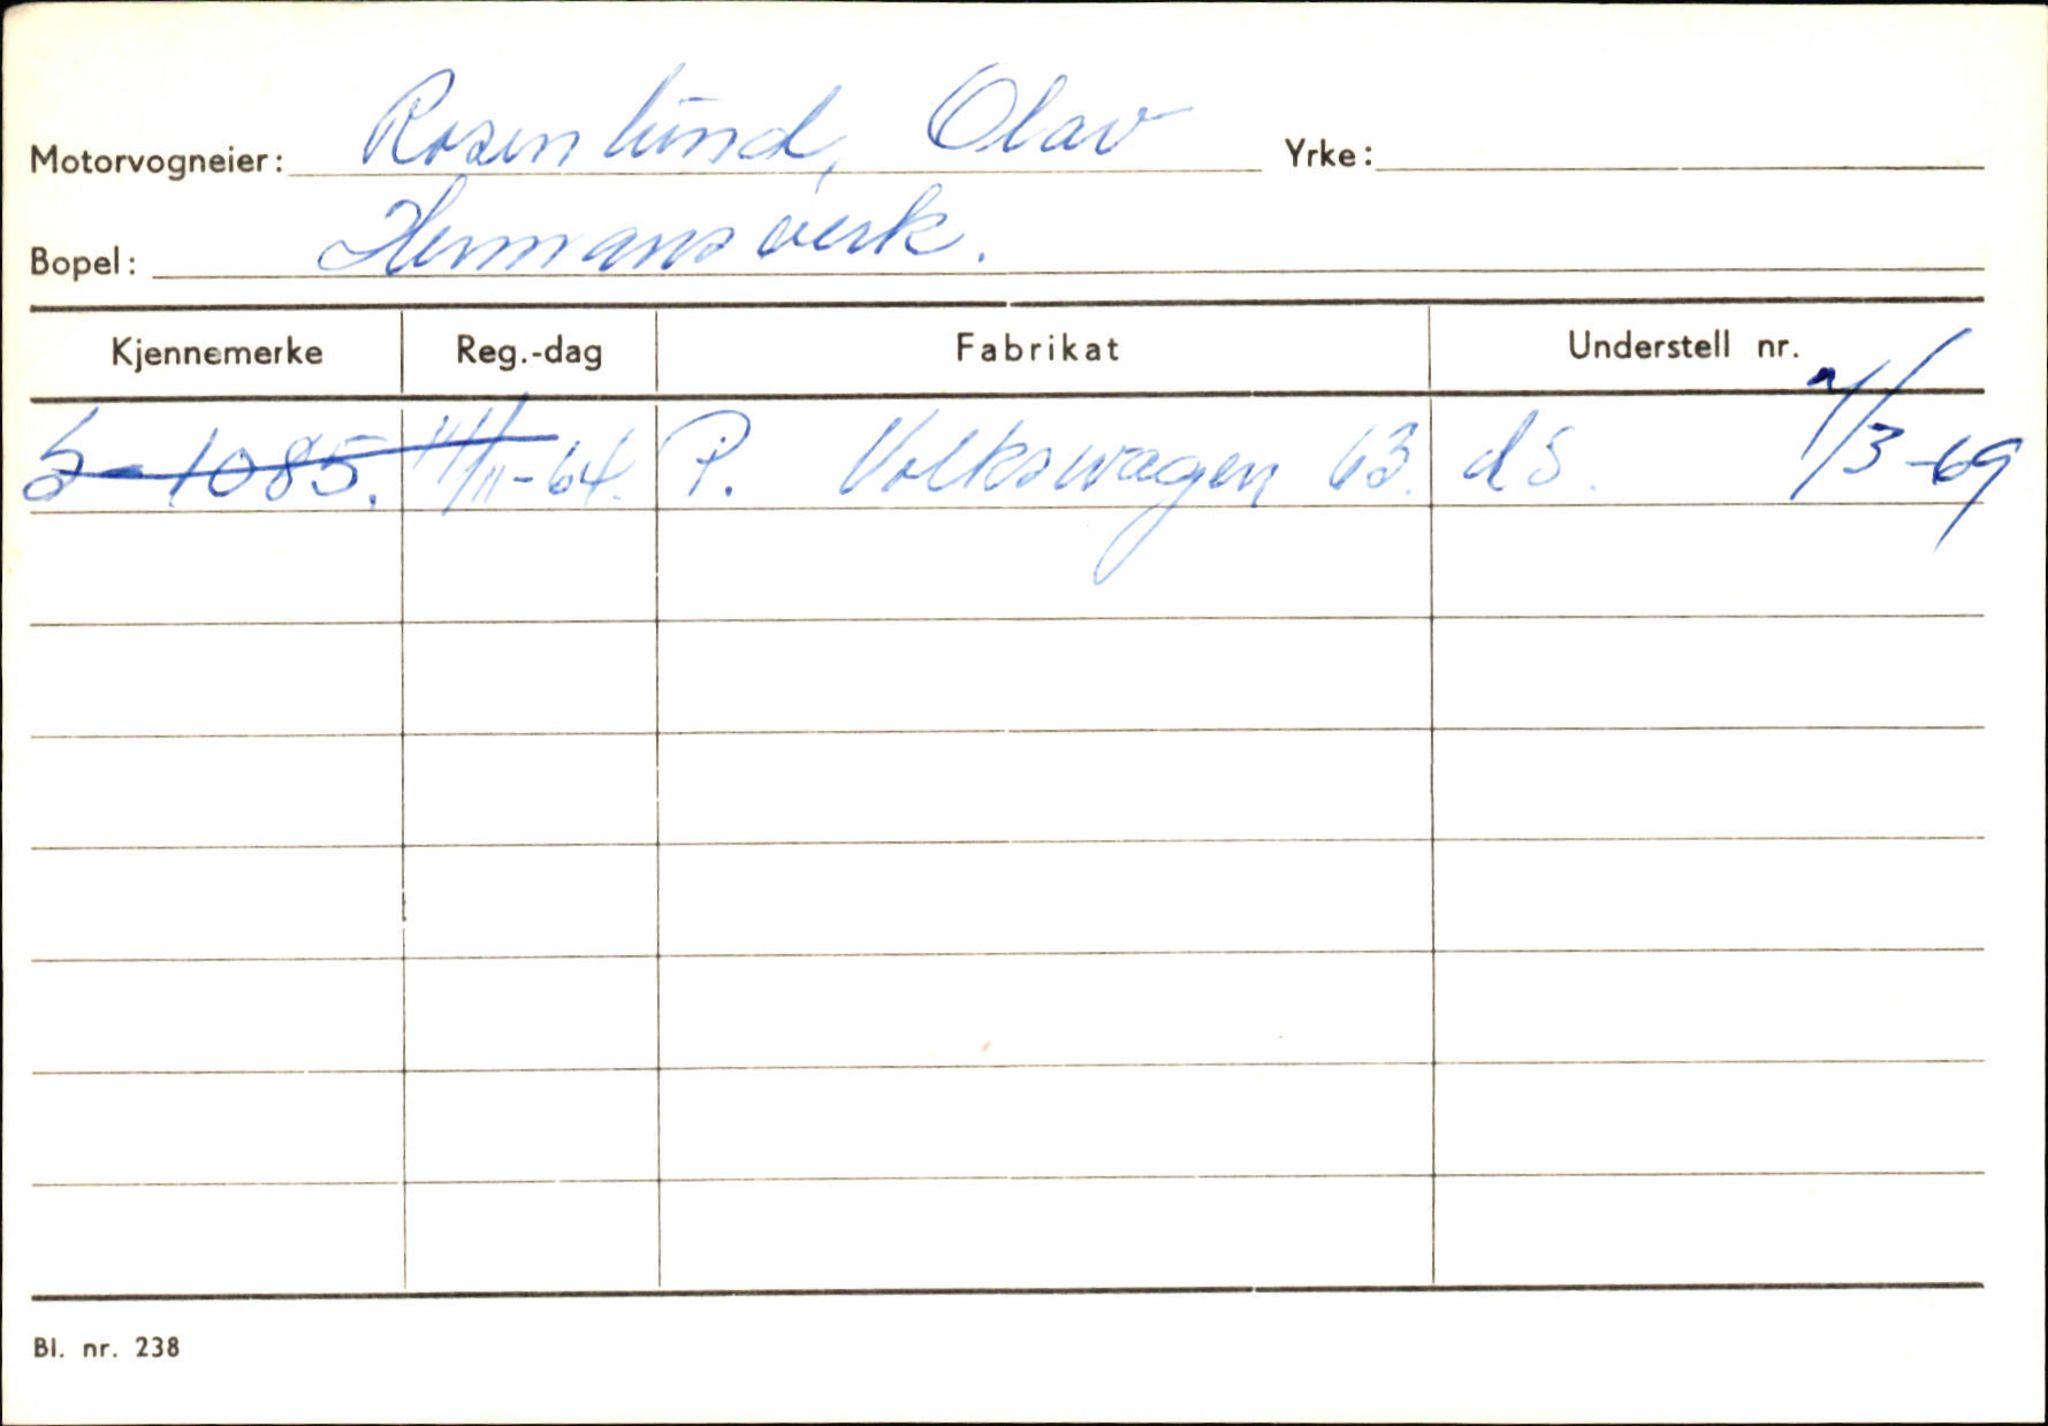 Motorvogneier: Rosenlund, Olav Yrke:
Bopel: Hermansverk.
Kjennemerke Reg.-dag Fabrikat Understell nr.
S-1085. 11/11-64. P. Volkswagen 63. dS. /3-69
Bl. nr. 238